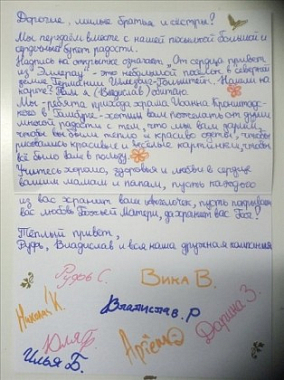 Дорогие, милые братья и сёстры!
Мы передаём вместе с нашей посылкой большой и
сердечный букет радости.
Надпись на открытке означает "От сердца привет
из" - это небольшой посёлок в северной
земле Германии Шлезвиг-Гольштейн. Нашли на
карте? Там я (Владислав) обитаю.
Мы - ребята прихода храма Иоанна Кронштадт-
ского в Гамбурге - хотим вам пожелать от души
много радости с тем, что мы вам дарим,
чтобы вы были тепло и красиво одеты, чтобы
рисовались красивые и весёлые картинки, чтобы
всё было вам в пользу.
Учитесь хорошо, здоровья и любви в сердце
вашим мамам и папам, пусть каждого
из вас хранит ваш ангелочек, пусть
вас любовь Божьей Матери, да хранит вас Бог!
Тёплый привет,
Рудь, Владислав и вся наша дружная компания
Рудь С.
Вика В.
Николай К.
Владислав. Р
Дарина З.
Юля Б.
Артём
Илья Б.